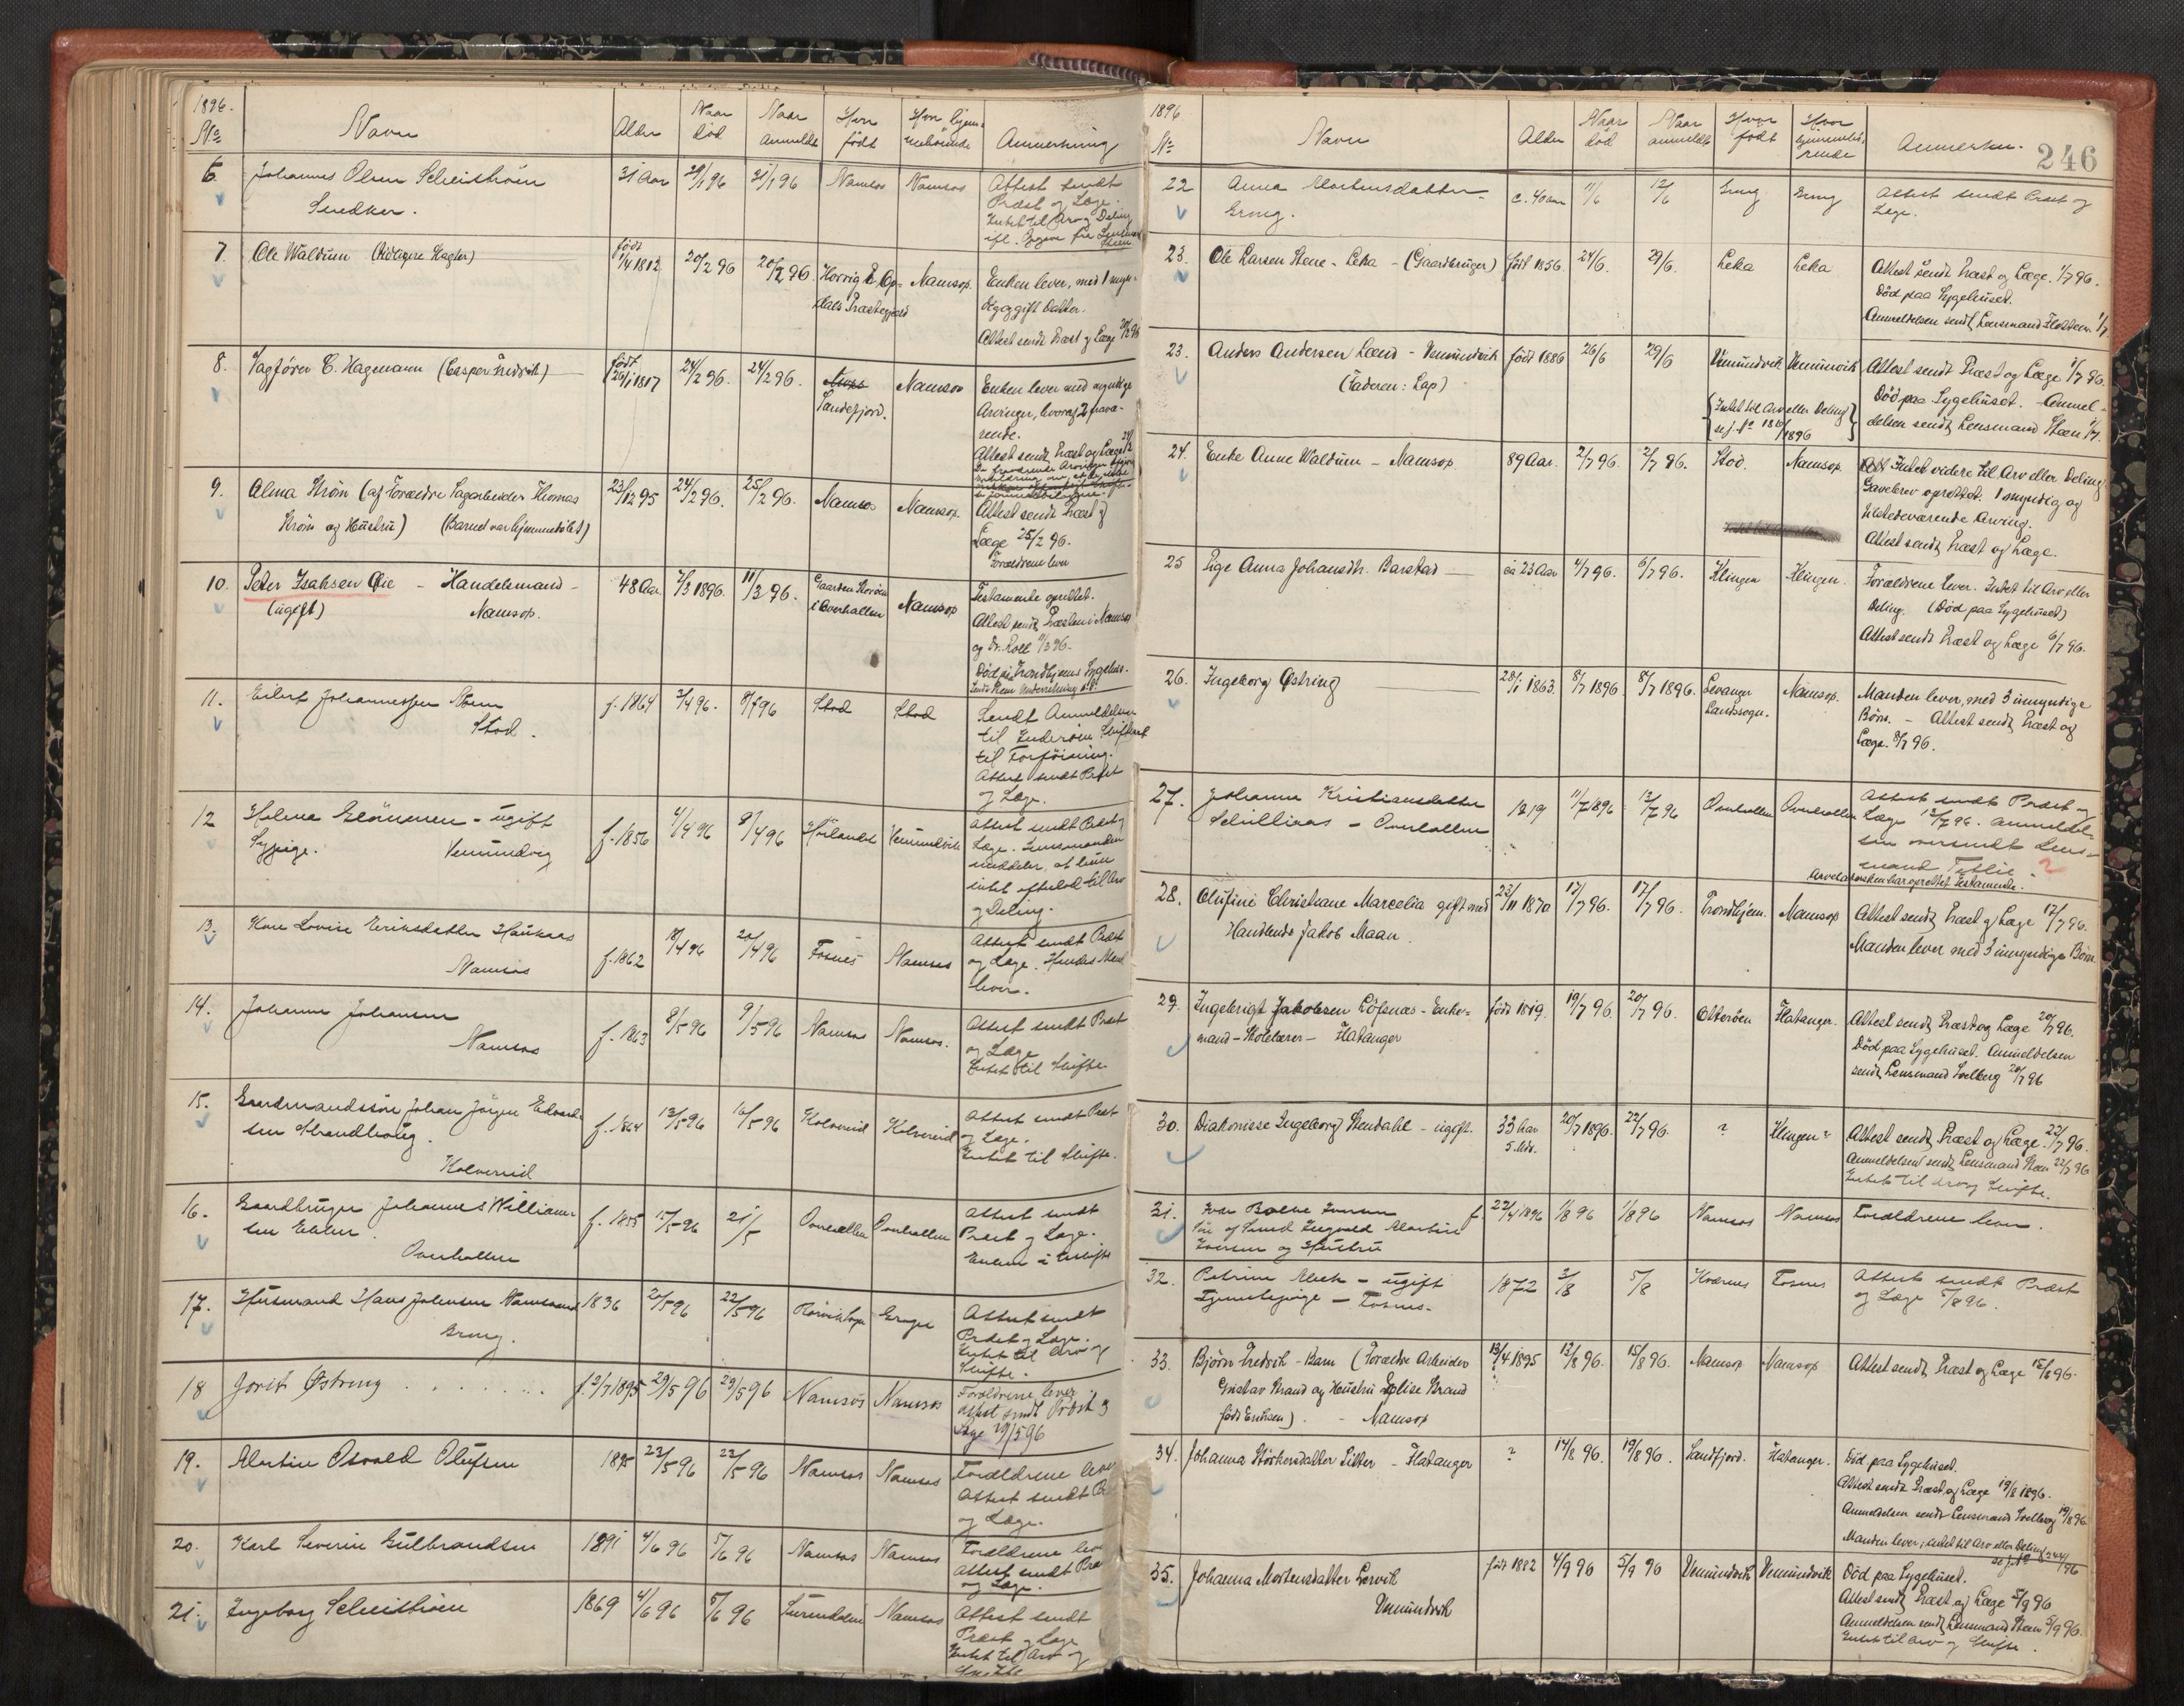 1896.
No Navn Alder Naar død Naar anmeldt Hvor født Hvor hjemmehørende Anmerkning
6. Johannes Olsen Scheiström
Snedker.
31 Aar 29/1 96 31/1 96 Namsos Namsos
Attest sendt
Præst og Læge.
Intet til Arv og Deling
7. Ole Waldum (tidligere Hagter)
født
1/4 1812 20/2 96 20/2 96. Namsos.
Enken lever, med 1 myn-
dig gift Datter.
Attest sendt Præst og Læge 20/2 96
8. Sagfører C. Hagemann (Casper Fredrik)
født
26/1 1817 24/2 96. 24/2 96. Moss
Sandefjord. Namsos
Enken lever med myndige
Arvinger, hvoraf 2 fravæ-
rende.
Attest sendt Præst og Læge 24/2
9. Alma Strøm (af Forældre Sagarbeider Thomas
Strøm og Hustru) (Barnet var hjemmedøbt)
23/12 95 24/2 96. 25/2 96. Namsos Namsos.
Attest sendt Præst og
Læge 25/2 96.
Forældrene lever
10. Peter Isaksen Øie - Handelsmand -
(ugift) Namsos.
48 Aar. 7/3 1896. 11/3 96.
i Overhallen Namsos
Testamente oprettet.
Attest sendt Præsten i Namsos
og Dr. Roll 11/3 96.
Død på Trondhjems Sygehus.
11. Eilert Johannessen
Stod.
f. 1864 3/4 96. 8/4 96 Stod Stod
Sendt Anmeldelsen
til Inderøen Skifteret
til Forføining.
Attest sendt Præst
og Læge.
12 Helena Glömmen - ugift
Sypige. Vemundvig
f. 1856 4/4 96 8/4 96 Vemundvik
Attest sendt Præst og
Læge. Lensmanden
meddeler, at hun
intet efterlod til Arv
og Deling.
13. Kone Lovise Eriksdatter Haukaas
Namsos
f. 1862 18/4 96 20/4 96 Fosnes Namsos
Attest sendt Præst
og Læge. Hendes Mand
lever.
14. Johannes Johansen
Namsos
f. 1863 8/5 96 9/5 96 Namsos Namsos.
Attest sendt Præst
og Læge
Intet til Skifte
15. Gaardmandssøn Johan Jørgen Edvard-
sen Strandhaug.
Kolvereid
f. 1864 12/5 96 16/5 96 Kolvereid Kolvereid
Attest sendt Præst
og Læge.
Intet til Skifte.
16. Gaardbruger Johannes William-
sen
Overhallen
f. 1855 15/5 96 21/5 Overhallen Overhallen
Attest sendt
Præst og Læge.
Enken i Uskifte
17. Husmand Hans Johnsen
Grong.
1836 20/5 96 22/5 96 Grong
Attest sendt
Præst og Læge.
Intet til Arv og
Skifte.
18 Jorit Østring
f. 2/7 1895 29/5 96 29/5 96 Namsos Namsos
Forældrene lever
Attest sendt Præst og
Læge 29/5 96
19. Martin Osvald Olufsen
1895 23/5 96 23/5 96 Namsos Namsos
Forældrene lever
Attest sendt Præ
og Læge.
20. Karl Severin Gulbrandsen
1891 4/6 96 5/6 96 Namsos Namsos
Forældrene lev
Attest sendt Præ
og Læge.
21. Ingeborg Scheiström
1869 4/6 96 5/6 96 Surendalen Namsos
Attest sendt
Præst og Læge
Intet til Arv og
Skifte
1896
No Navn Alder Naar død Naar anmeldt Hvor født Hvor hjemmehø-
rende Anmerkn. 246
22 Anna Mortensdatter
Grong.
c. 40 aar 11/6 12/6 Grong Grong
Attest sendt Præst og
Læge.
23. Ole Larsen Stene - Leka - (Gaardbruger) født 1856. 24/6. 29/6. Leka Leka
Attest sendt Præst og Læge. 1/7 96.
Død paa Sygehuset.
Anmeldelsen sendt Lensmand 1/7
23. Anders Andersen Lænd - Vemundvik født 1886 26/6 29/6 Vemundvik Vemunvik
(Faderen: Lap)
(Intet til Arv eller Deling)
1896
Attest sendt Præst og Læge 1/7 96.
Død paa Sygehuset. - Anmel-
delsen sendt Lensmand Steen 1/7.
24. Enke Anne Waldum - Namsos 89 Aar. 2/7 96. 2/7 96. Stod. Namsos.
Intet videre til Arv eller Deling
Gavebrev oprettet. 1 myndig og
tilstedeværende Arving.
Attest sendt Præst og Læge.
25 Pige Anna Johansdtr. Barstad ca 23 Aar 4/7 96. 6/7 96. Klingen Klingen.
Forældrene lever. Intet til Arv eller
Deling. (Død paa Sygehuset)
Attest sendt Præst og Læge 6/7 96.
26. Ingeborg Østring 28/1 1863. 8/7 1896. 8/7 1896. Levanger
Landssogn. Namsos.
Manden lever, med 3 umyndige
Børn. - Attest sendt Præst og
Læge. 8/7 96.
27. Johanna Kristiansdatter
- Overhallen
1819 11/7 1896 13/7 96 Overhallen Overhallen
Attest sendt Præst og
Læge 13/7 96. Anmeldel-
sen oversendt Lens-
mand
har oprettet Testamente.
28. Olufine Christiane Marcelia gift med
Handlende Jakob Maan.
23/11 1870 17/7 96. 17/7 96. Trondhjem. Namsos
Attest sendt Præst og Læge 17/7 96.
Manden lever med 3 umyndige Børn.
29. Ingebrigt Jakobsen Löfsnæs - Enke-
mand - Skolelærer - Flatanger
født 1819. 19/7 96. 20/7 96. Otterøen Flatanger.
Attest sendt Præst og Læge 20/7 96.
Død paa Sygehuset. Anmeldelsen
sendt Lensmand Solberg 20/7 96
30. Diakonisse Ingeborg Stendahl - ugift.
33 Aar
5 Mdr. 20/7 1896. 22/7 96. ? Klingen?
Attest sendt Præst og Læge. 22/7 96.
Anmeldelsen sendt Lensmand Steen 22/7 96
Intet til Arv og Skifte.
31. Ivar Iversen
Søn af Smed Ingvald Martin
Iversen og Hustru
f. 22/4 1896 1/8 96 1/8 96 Namsos Namsos Forældrene lever.
32. Petrine Moek - ugift
Tjenestepige - Fosnes.
1872 3/8 5/8 Fosnes
Attest sendt Præst
og Læge 5/8 96.
33. Bjørn Fredrik - Barn (Forældre Arbeider
Gustav Strand og Hustru Elise Strand
født Eriksen). - Namsos
13/4 1895 12/8 96. 15/8 96. Namsos Namsos
Attest sendt Præst og Læge 15/8 96.
34. Johanna Størkersdatter Sitter - Flatanger ? 14/8 96. 19/8 96. Sandfjord. Flatanger.
Død paa Sygehuset.
Attest sendt Præst og Læge 19/8 1896.
Anmeldelsen sendt Lensmand Solberg 19/8 96
Manden lever; intet til Arv eller Deling
35. Johanna Mortensdatter Lervik
Vemundvik
født 1882 4/9 96 5/9 96 Vemundvik Vemundvik
Død paa Sygehuset.
Attest sendt Præst og Læge 5/9 96
Anmeldelsen sendt Lensmand Steen 5/9 96.
Intet til Arv og Skifte.